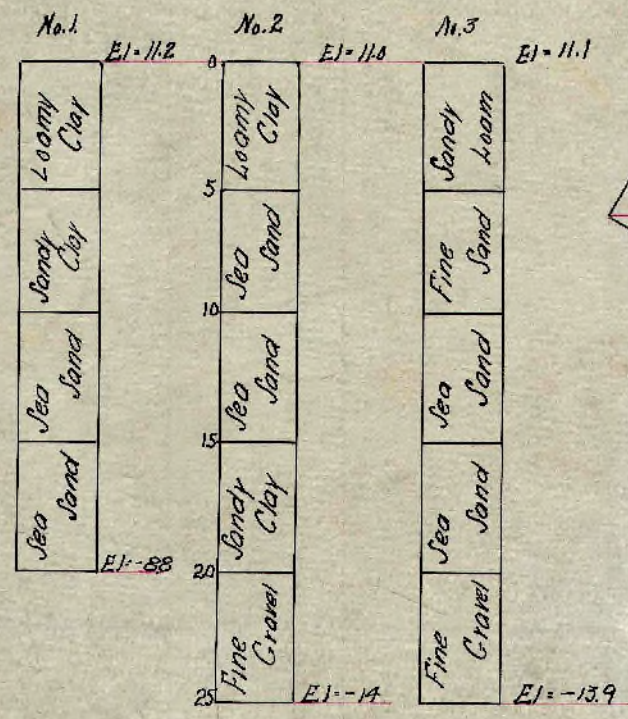 No.1.
El=11.2
Loamy
Clay
Sandy
Clay
Sea
Sand
Sea
Sand
El=-8.8
No.2
El=11.0
0
5
10
15
20
25
Loamy
Clay
Sea
Sand
Sea
Sand
Sandy
Clay
Fine
Gravel
El=-14
No.3
El=11.1
Sandy
Loam
Fine
Sand
Sea
Sand
Sea
Sand
Fine
Gravel
El=-13.9